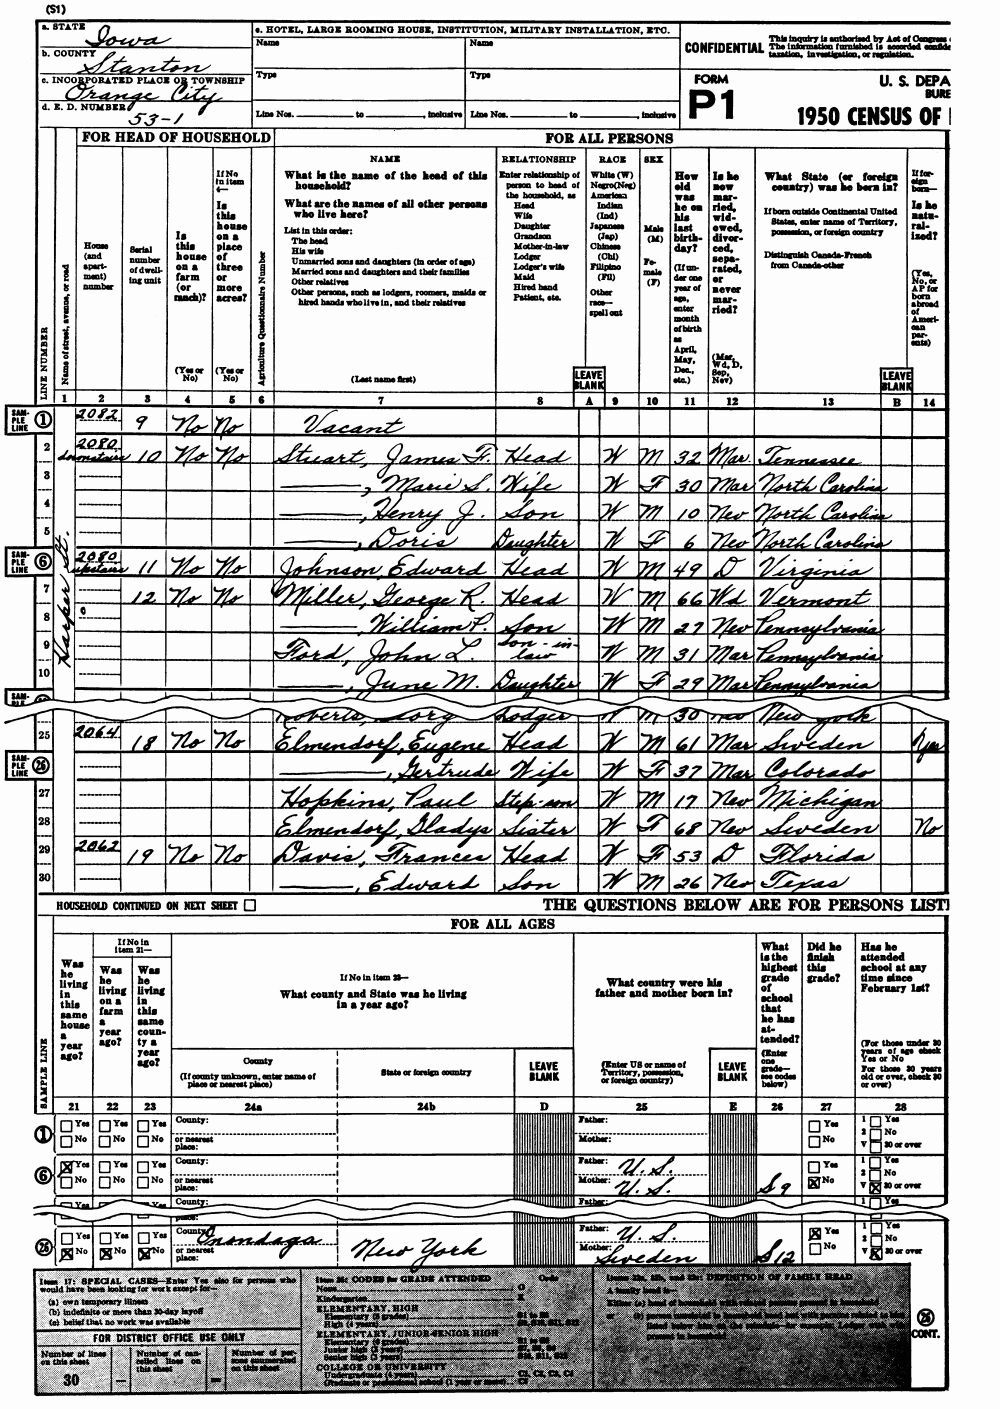 (S1)
a. STATE
Iowa
b. COUNTY
Stanton
c. INCORPORATED PLACE OR TOWNSHIP
Orange City
d. E. D. NUMBER
53-1
e. HOTEL, LARGE ROOMING HOUSE, INSTITUTION, MILITARY INSTALLATION, ETC.
Name Name
Type Type
Line Nos. to , inclusive Line Nos. to , inclusive
CONFIDENTIAL
This inquiry is authorized by Act of Congress
The information furnished is accorded
taxation, investigation, or regulation.
FORM
P1
U. S. DEPA
BURE
1950 CENSUS OF
FOR HEAD OF HOUSEHOLD
FOR ALL PERSONS
LINE NUMBER
Name of street, avenue, or road
House (and apartment) number
Serial number of dwelling unit
Is this house on a farm (or ranch)?
(Yes or No)
If No in item 4—
Is this house on a place of three or more acres?
(Yes or No)
Agriculture Questionnaire Number
NAME
What is the name of the head of this household?
What are the names of all other persons who live here?
List in this order:
The head
His wife
Unmarried sons and daughters (in order of age)
Married sons and daughters and their families
Other relatives
Other persons, such as lodgers, roomers, maids or hired hands who live in, and their relatives
(Last name first)
RELATIONSHIP
Enter relationship of person to head of the household, as
Head
Wife
Daughter
Grandson
Mother-in-law
Lodger
Lodger's wife
Maid
Hired hand
Patient, etc.
LEAVE BLANK
RACE
White (W)
Negro (Neg)
American Indian (Ind)
Japanese (Jap)
Chinese (Chi)
Filipino (Fil)
Other race—spell out
SEX
Male (M)
Female (F)
How old was he on his last birthday?
(If under one year of age, enter month of birth as April, May, Dec., etc.)
Is he now married, widowed, divorced, separated, or never married?
(Mar, Wd, D, Sep, Nev)
What State (or foreign country) was he born in?
If born outside Continental United States, enter name of Territory, possession, or foreign country
Distinguish Canada-French from Canada-other
LEAVE BLANK
If foreign born—
Is he naturalized?
(Yes, No, or AP for born abroad of American parents)
1 2 3 4 5 6 7 8 A 9 10 11 12 13 B 14
Harper St.
SAMPLE LINE 1 2082 9 No No Vacant
2 2080 downstairs 10 No No Stuart, James F. Head W M 32 Mar Tennessee
3 ———, Marie S. Wife W F 30 Mar North Carolina
4 ———, Henry J. Son W M 10 Nev North Carolina
5 ———, Doris Daughter W F 6 Nev North Carolina
SAMPLE LINE 6 2080 upstairs 11 No No Johnson, Edward Head W M 49 D Virginia
7 12 No No Miller, George R. Head W M 66 Wd Vermont
8 ———, William P. Son W M 27 Nev Pennsylvania
9 Ford, John L. Son-in-law W M 31 Mar Pennsylvania
10 ———, June M. Daughter W F 29 Mar Pennsylvania
Lodger W M 30 New York
25 2064 18 No No Elmendorf, Eugene Head W M 61 Mar Sweden Yes
SAMPLE LINE 26 ———, Gertrude Wife W F 37 Mar Colorado
27 Hopkins, Paul Step-son W M 17 Nev Michigan
28 Elmendorf, Gladys Sister W F 68 Nev Sweden No
29 2062 19 No No Davis, Frances Head W F 53 D Florida
30 ———, Edward Son W M 26 Nev Texas
HOUSEHOLD CONTINUED ON NEXT SHEET
THE QUESTIONS BELOW ARE FOR PERSONS LIST
FOR ALL AGES
SAMPLE LINE
Was he living in this same house a year ago?
If No in item 21—
Was he living on a farm a year ago?
Was he living in this same county a year ago?
If No in item 23—
What county and State was he living in a year ago?
County
(If county unknown, enter name of place or nearest place)
State or foreign country
LEAVE BLANK
What country were his father and mother born in?
(Enter US or name of Territory, possession, or foreign country)
LEAVE BLANK
What is the highest grade of school that he has attended?
(Enter one grade—see codes below)
Did he finish this grade?
Has he attended school at any time since February 1st?
(Yes or No)
(For those under 30 years of age check Yes or No
For those 30 years old or over, check 30 or over)
21 22 23 24a 24b D 25 E 26 27 28
1 Yes No Yes No Yes No County: or nearest place: Father: Mother: Yes No 1 Yes 2 No V 30 or over
6 Yes No Yes No Yes No County: or nearest place: Father: U. S. Mother: U. S. S9 Yes No 1 Yes 2 No V 30 or over
County: Father: 1 Yes
26 Yes No Yes No Yes No County: Onondaga or nearest place: New York Father: U. S. Mother: Sweden S12 Yes No 1 Yes 2 No V 30 or over
Item 17: SPECIAL CASES—Enter Yes also for persons who would have been looking for work except for—
(a) own temporary illness
(b) indefinite or more than 30-day layoff
(c) belief that no work was available
FOR DISTRICT OFFICE USE ONLY
Number of lines on this sheet
30
Number of cancelled lines on this sheet
—
Number of persons enumerated on this sheet
—
Item 26: CODES for GRADE ATTENDED Code
None 0
Kindergarten K
ELEMENTARY, HIGH
Elementary (8 grades) S1 to S8
High (4 years) S9, S10, S11, S12
ELEMENTARY, JUNIOR-SENIOR HIGH
Elementary (6 grades)
Junior high (3 years)
Senior high (3 years) S10, S11, S12
COLLEGE OR UNIVERSITY
Undergraduate (4 years) C1, C2, C3, C4
Graduate or professional school (1 year or more) C5
DEFINITION OF FAMILY HEAD
A family head is—
26
CONT.